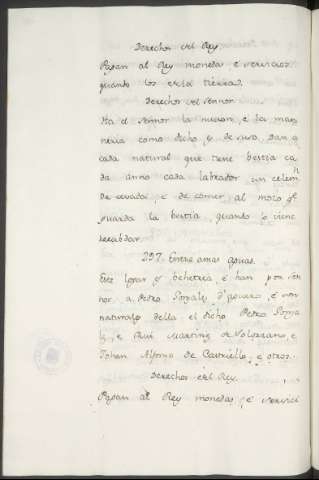 Derechos del Rey.
Pagan al Rey monedas e servicios
quando los otros tierras.
Derechos del Sennor.
Ha el Sennor la inurcion, e ha man
neria como dicho es de suso. Dan a
cada natural que tiene bestia ca
da anno cada labrador un celem
de cevada, e de comer al mozo qe
guarda la bestia, quando lo viene
recabdar.
297. Entre amas aguas.
Este logar es behetria, e han por sen
nor a Pedro Gonzalez d'Aguero, e son
naturales della el dicho Pedro Gonza
lez, e Rui Martinez de Solorzano, e
Johan Alfonso de Castriello, e otros.
Derechos del Rey.
Pagan al Rey monedas, e servici